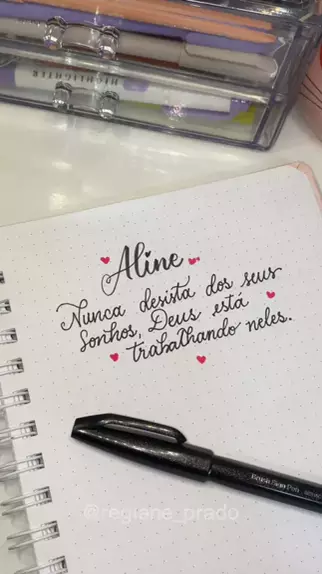 HIGHLIGHTER
Aline
Nunca desista dos seus
Sonhos, Deus está
trabalhando neles.
Brush Sign Pen
@regiane_prado